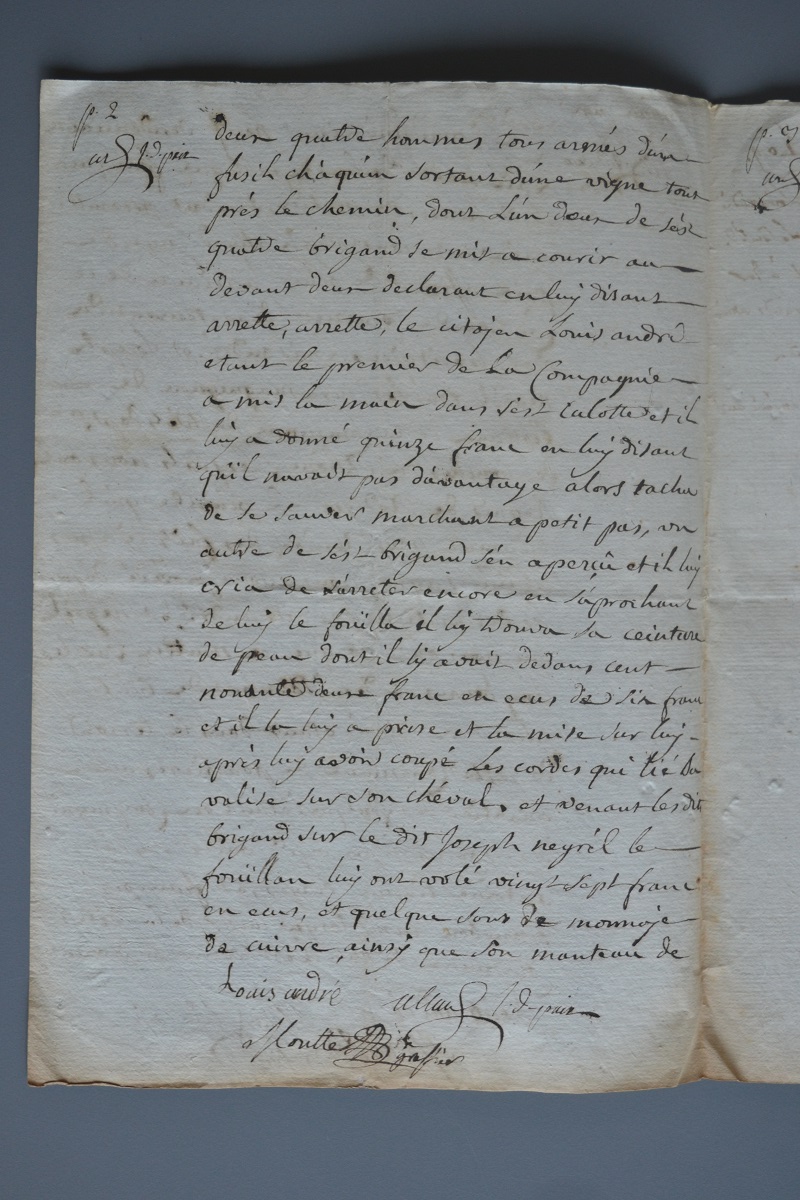 p. 2
j. d. paix
deux quatre hommes tous armés d'un
fusil chàquún sortant dúne vigne tout
prés le chemin, dont L'ún deux de sést
quatre brigand se mit a courir au
devant deux declarant en luy disant
arrette, arrette, le citoyen Louis andré
etant le premier de La Compagnie
a mis la main dans sest culotte et il
luy a donné quinze franc en luy disant
qu'il navait pas dávantage alors tacha
de se sauver marchant a petit pas, un
autre de sést brigand sén aperçû et il luy
cria de sárreter encore en sáprochant
de luy le foüilla il luy trouva sa ceinture
de peau dont il ly avait dedans cent
nonante deux franc en ecus de six franc
et il la luy a prise et la mise sur luy
aprés luy avoir coupé Les cordes qui lié la
valise sur son chéval, et venant les dit
brigand sur le dit Joseph neyrél le
foüillan luy ont volé vingt sept franc
en ecus, et quelque sous de monnoye
de cuivre ainsy que son manteau de
Louis andré allau j. d. paix
Moutte greffier
p. 3